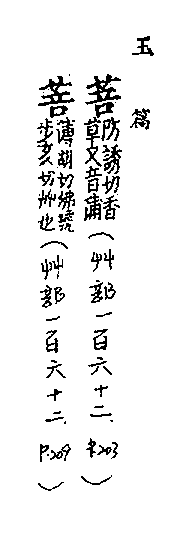 玉篇
菩 防誘切香草又音蒲(艸部一百六十二、P.203)
菩 薄胡切緣號步亥切艸也(艸部一百六十二、P.209)